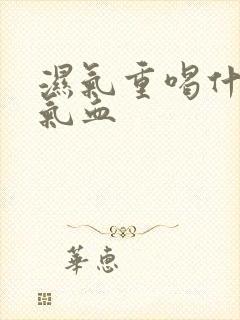 濕氣重喝什
氣血
華惠